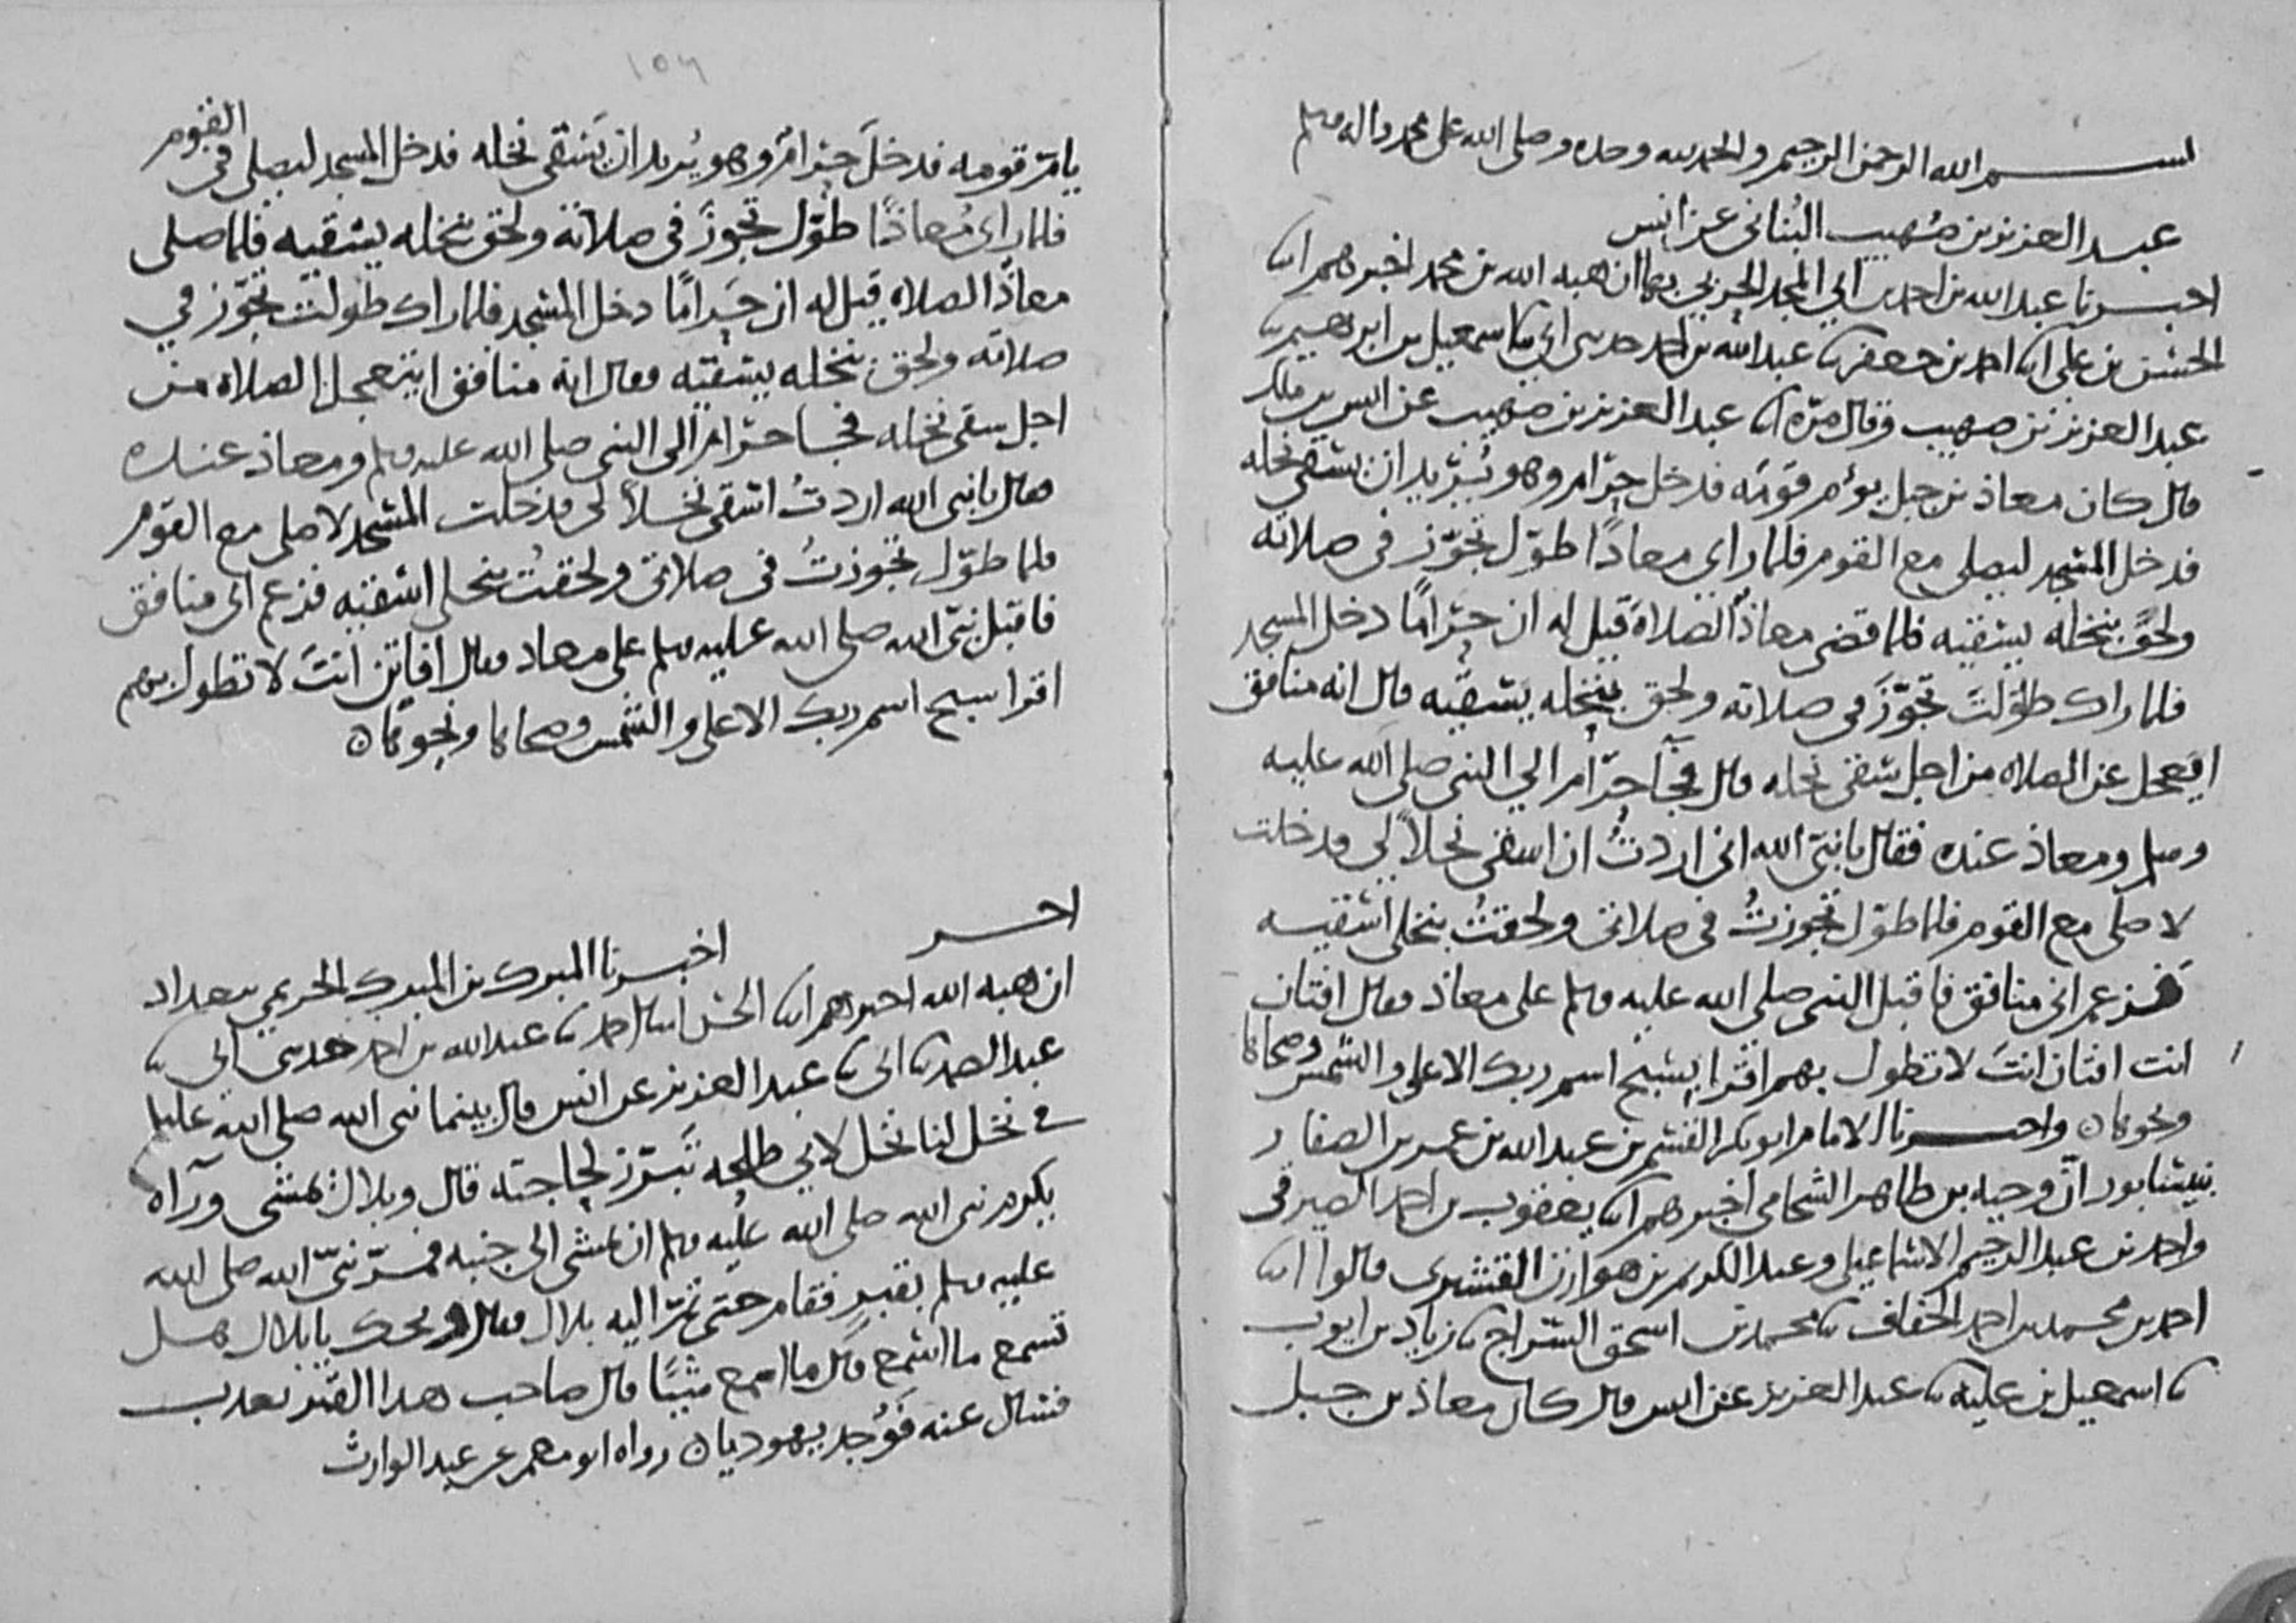 بسم الله الرحمن الرحيم والحمد لله وحده وصلى الله على محمد واله وسلم
عبد العزيز بن صُهيب البُناني عن انس
اخبرنا عبد الله بن احمد بن ابي المجد الحربي بها ان هبه الله بن محمد اخبرهم انا
الحسن بن علي انا احمد بن جعفر نا عبد الله بن احمد حدثني ابي نا اسمعيل بن ابرهيم نا
عبد العزيز بن صهيب وقال مرّه انا عبد العزيز بن صهيب عن انس بن ملك
قال كان معاذ بن جبل يؤم قومَه فدخل حرَام وهو يُريد ان يسقي نخله
فدخل المسجد ليصلي مع القوم فلما راى معاذًا طوّل تجوّز في صلاته
ولحق بنخله يسقيه فلما قضى معاذ الصلاة قيل له ان حرَامًا دخل المسجد
فلما راك طوّلت تجوّزَ في صلاته ولحق بنخله يسقيه قال انه منافق
ايعجل عن الصلاه من اجل سقي نخله قال فجآ حرَام الى النبي صلى الله عليه
وسلم ومعاذ عنده فقال يا نبيّ الله اني اردتُ ان اسقي نخلاً لي فدخلت
لاصلي مع القوم فلما طوّل تجوزتُ في صلاتي ولحقتُ بنخلي اسقيه
فزعم اني منافق فاقبل النبي صلى الله عليه وسلم على معاذ فقال افتان
انت افتان انتَ لا تطول بهم اقرا بسبح اسم ربك الاعلى والشمس وضحاها
ونحوهما ه واخبرنا الامام ابو بكر القسم بن عبد الله بن عمر بن الصفار
بنيسابور انّ وجيه بن طاهر الشحامي اخبرهم انا يعقوب بن احمد الصيرفي
واحمد بن عبد الرحيم الاسماعيلي وعبد الكريم بن هوازن القشيري قالوا انا
احمد بن محمد بن احمد الخفاف نا محمد بن اسحق السّراج نا زياد بن ايوب
نا اسمعيل بن علية نا عبد العزيز عن انس قال كان معاذ بن جبل
١٥٦
يامّ قومه فدخلَ حرَامٌ وهو يُريد ان يَسْقي نخله فدخل المسجد ليصلي في القوم
فلما راى مُعاذًا طوّل تجوزَ في صلاته ولحق بنخله يسقيه فلما صلى
معاذٌ الصلاه قيل له ان حَرامًا دخل المسجد فلما راك طولت تجوّز في
صلاته ولحق بنخله يسقيه فقال انه منافق ايتعجل الصلاه من
اجل سقي نخله فجا حرَام الى النبي صلى الله عليه وسلم ومعاذ عنده
فقال يا نبي الله اردتُ اسقي نخلاً لي فدخلت المسجد لاصلي مع القوم
فلما طوّل تجوزتُ في صلاتي ولحقتُ بنخلي اسقيه فزعم اني منافق
فاقبل نبيّ الله صلى الله عليه وسلم على معاذ فقال افاتن انتَ لا تطول بهم
اقرا سبح اسم ربك الاعلى والشمس وضحاها ونحوهما ه
اخبرنا المبرك بن المبرك الحريمي ببغداد
ان هبه الله اخبرهم انا الحسن انا احمد نا عبد الله بن احمد حدثني ابي نا
عبد الصمد نا ابي نا عبد العزيز عن انس قال بينما نبي الله صلى الله عليه
في نخل لنا نخل لابي طلحه تبَرّز لحاجته قال وبلال يمشي ورآه
يكرم نبي الله صلى الله عليه وسلم ان يمشي الى جنبه فمرّ نبيّ الله صلى الله
عليه وسلم بقبرٍ فقام حتى تمّ اليه بلال فقال ويحك يا بلال هل
تسمع ما اسمع قال ما اسمع شيئًا قال صاحب هذا القبر يعذب
فسال عنه فوُجد يهوديا ه رواه ابو معمر عن عبد الوارث